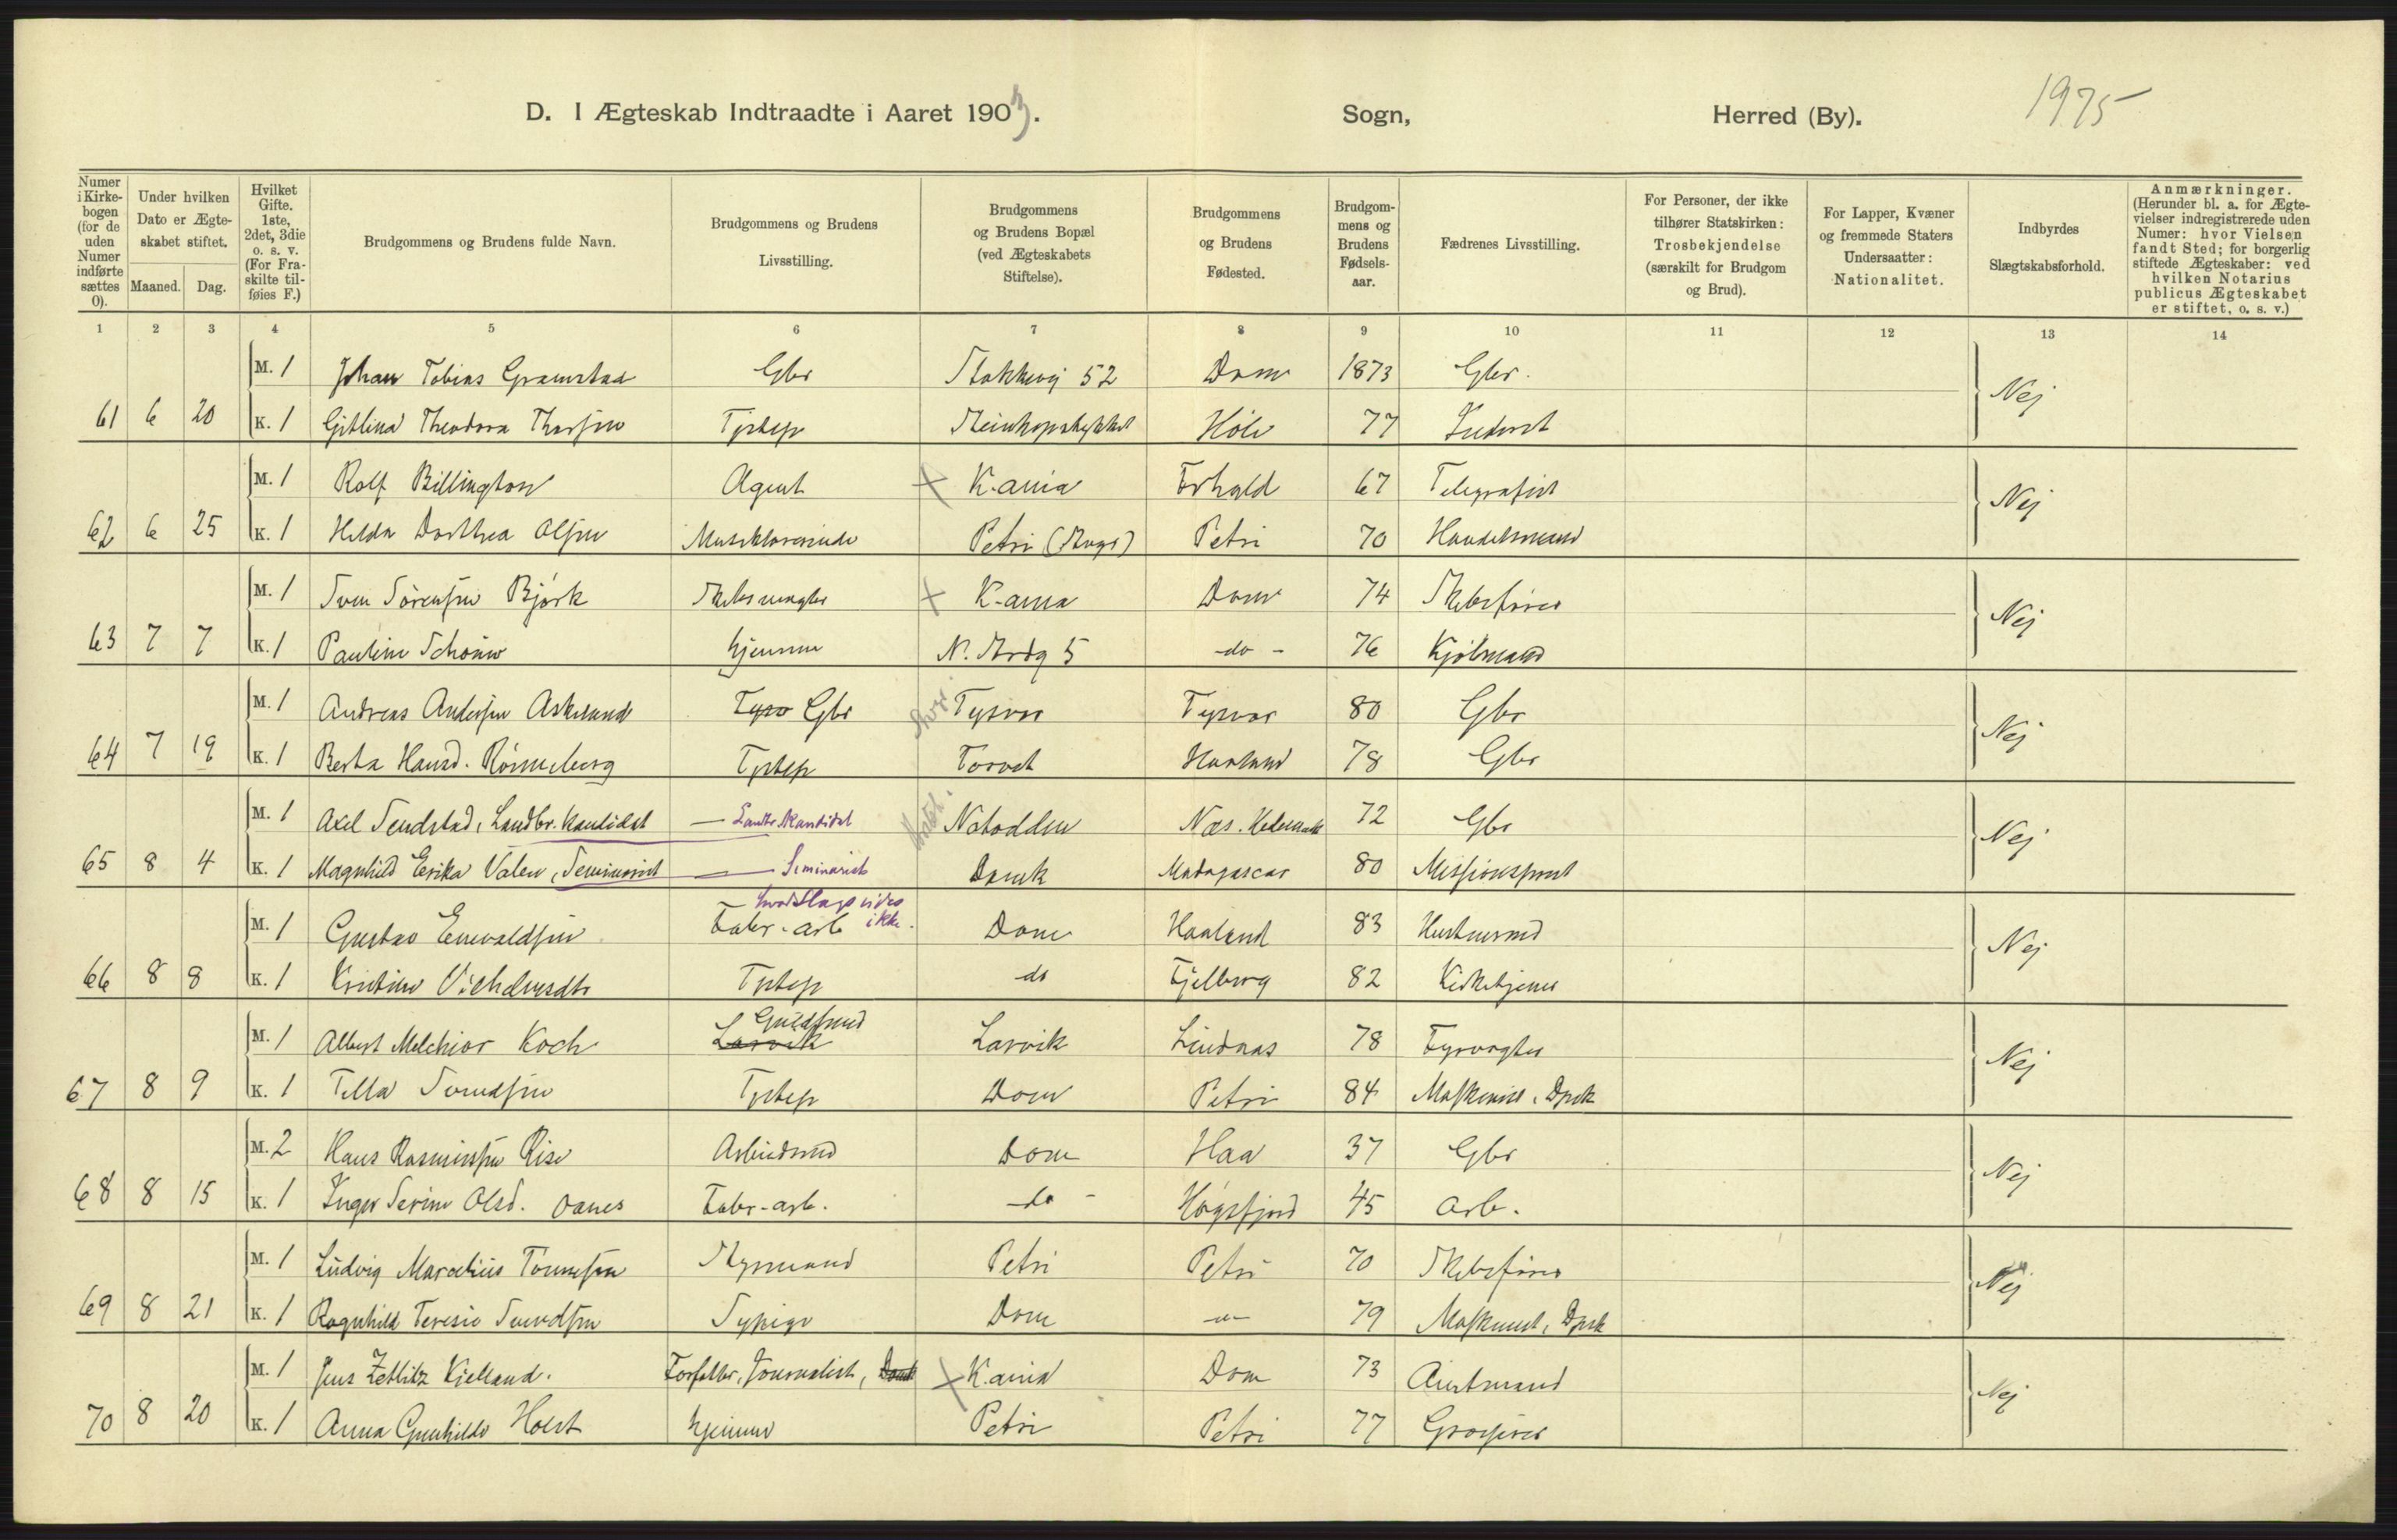 D. I Ægteskab Indtraadte i Aaret 1903. Sogn, Herred (By). 1975
Numer i Kirkebogen (for de uden Numer indførte sættes 0). Under hvilken Dato er Ægteskabet stiftet. Maaned. Dag. Hvilket Gifte. 1ste, 2det, 3die o. s. v. (For Fraskilte tilføies F.) Brudgommens og Brudens fulde Navn. Brudgommens og Brudens Livsstilling. Brudgommens og Brudens Bopæl (ved Ægteskabets Stiftelse). Brudgommens og Brudens Fødested. Brudgommens og Brudens Fødselsaar. Fædrenes Livsstilling. For Personer, der ikke tilhører Statskirken: Trosbekjendelse (særskilt for Brudgom og Brud). For Lapper, Kvæner og fremmede Staters Undersaatter: Nationalitet. Indbyrdes Slægtskabsforhold. Anmærkninger. (Herunder bl. a. for Ægtevielser indregistrerede uden Numer: hvor Vielsen fandt Sted; for borgerlig stiftede Ægteskaber: ved hvilken Notarius publicus Ægteskabet er stiftet, o. s. v.)
1 2 3 4 5 6 7 8 9 10 11 12 13 14
M. 1 Johan Tobias Gramstad Gbr Stokkevej 52 Dom 1873 Gbr. Nej
61 6 20 K. 1 Gitlina Theodora Thorsen Tjstep Høle 77
M. 1 Rolf Billington Agent K.ania 67 Telegrafist Nej
62 6 25 K. 1 Helda Dorthea Olsen Musiklærerinde Petri Petri 70 Handelsmand
M. 1 Sven Sørensen Bjørk K.ania Dom 74 Skibsfører Nej
63 7 7 K. 1 Pauline hjemme 5 do - 76
M. 1 Andreas Andersen Askelund Gbr Tysvær Tysvær 80 Gbr Nej
64 7 19 K. 1 Berta Hansd. Rønneberg Tjstep Torvet Haaland 78 Gbr
M. 1 Axel Sendstad, Landbr. Kandidat Landbr Kandidat Notodden Næs. Hedemark 72 Gbr Nej
65 8 4 K. 1 Magnhild Erika Valen, Seminarist Seminarist Domk Madagascar 80 Missionsprest
hvadslags vides ikke.
M. 1 Gustav Enevaldsen Fabr. arb Dom Haaland 83 Husmand Nej
66 8 8 K. 1 Kristine Tjstep do Fjelberg 82 Kirketjener
Guldsmed
M. 1 Albert Melchior Koch Larvik Larvik Lindnæs 78 Fyrvogter Nej
67 8 9 K. 1 Tilla Svendsen Tjstep Dom Petri 84 Maskinist, Dpsk
M. 2 Hans Rasmussen Risa Arbeidsmd Dom Haa 37 Gbr Nej
68 8 15 K. 1 Inger Serine Olsd. Oanes Fabr-arb. do - Høgsfjord 45 Arb.
M. 1 Ludvig Marcelius Tønnesen Styrmand Petri Petri 70 Skibsfører Nej
69 8 21 K. 1 Ragnhild Teresie Svendsen Sypige Dom 79 Maskinist, Dpsk
M. 1 Jens Zetlitz Kielland. Forfatter, Journalist, K.ania Dom 73 Nej
70 8 20 K. 1 Anna Gunhilde Holst hjemme Petri Petri 77 Grosserer